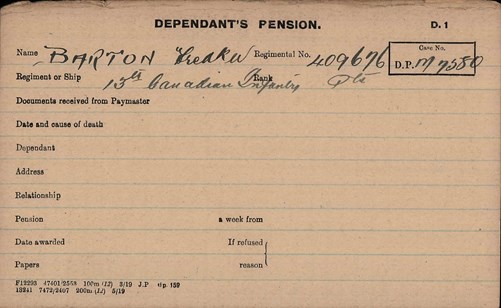 DEPENDANT'S PENSION. D. 1
Name BARTON Regimental No. 409676 Case No.
D.P. M7580
Regiment or Ship 13th Canadian Infantry Rank Pte
Documents received from Paymaster
Date and cause of death
Dependant
Address
Relationship
Pension a week from
Date awarded If refused
Papers reason
F12293 47401/2558 100m (IJ) 3/19 J.P
13241 7472/2407 200m (IJ) 5/19